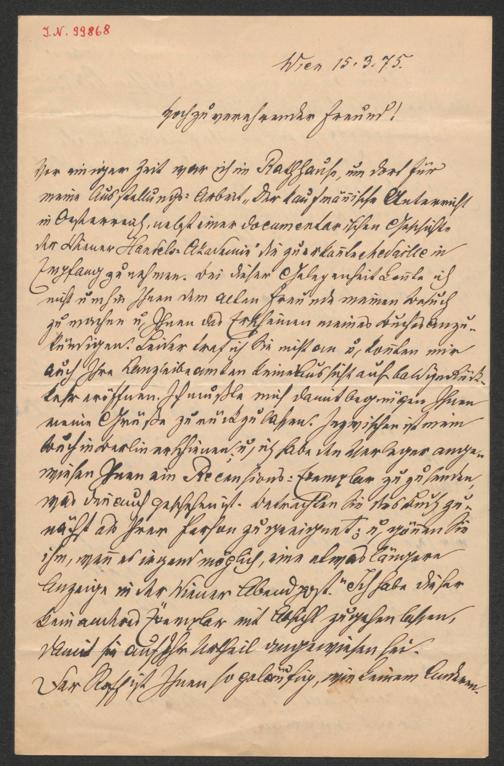 J.N. 99868
Wien 15.3.75.
Hochzuverehrender Freund!
Vor einiger Zeit war ich im Rathhause, um dort für
meine Ausstellungs-Arbeit „Der kaufmännische Unterricht
in Oesterreich, nebst einer documentarischen Geschichte
der Wiener Handels-Akademie" die zuerkannte Medaille in
Empfang zu nehmen. Bei dieser Gelegenheit konnte ich
nicht umhin Ihnen dem alten Freunde meinen Besuch
zu machen u. Ihnen das Erscheinen meines Buches anzu-
kündigen. Leider traf ich Sie nicht an u. konnten mir
auch Ihre Kanzleibeamten keine Aussicht auf baldige Rück-
kehr eröffnen. Ich mußte mich damit begnügen Ihnen
meine Grüße zurückzulassen. Inzwischen ist mein
Buch in Berlin erschienen u. ich habe den Verleger ange-
wiesen Ihnen ein Recensions-Exemplar zuzusenden
was denn auch geschehen ist. Betrachten Sie das Buch zu-
nächst als Ihrer Person zugeeignet; u. gönnen Sie
ihm, wenn es irgend möglich, eine etwas längere
Anzeige in der Wiener Abendpost." Ich habe dieser
kein anderes Exemplar mit Absicht zugehen lassen,
damit sie auf Ihr Urtheil angewiesen sei.
Der Stoff ist Ihnen so geläufig, wie keinem Andern.